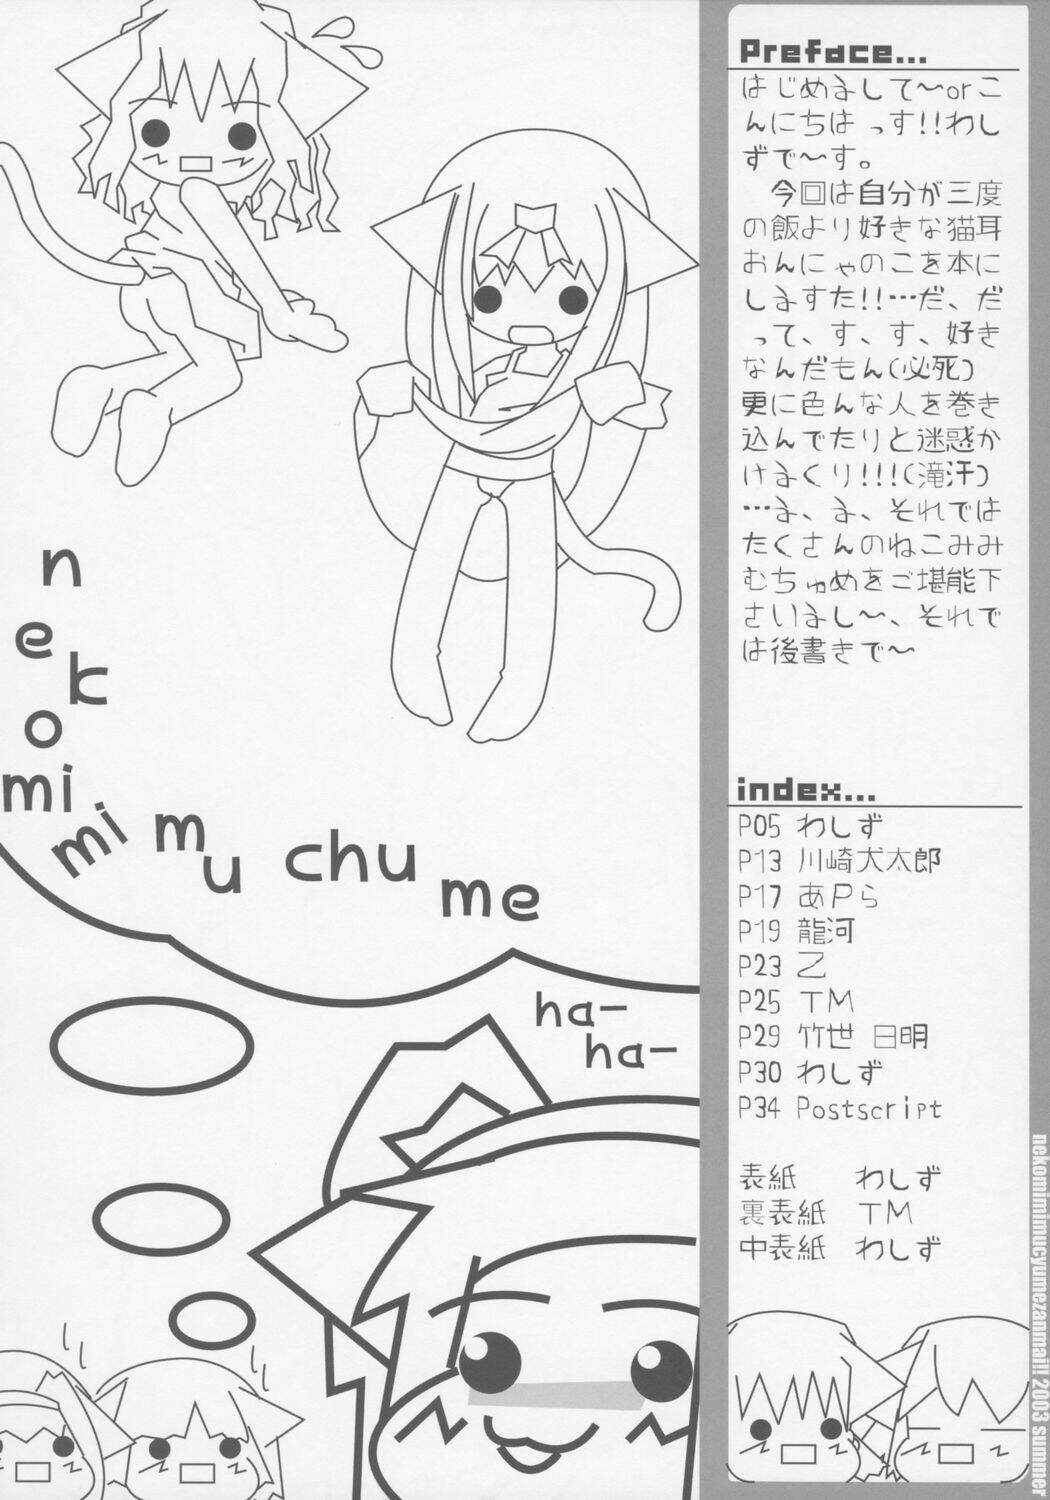 Preface...
はじめまして～orこ
んにちは っす!!わし
ずで～す。
　今回は自分が三度
の飯より好きな猫耳
おんにゃのこを本に
しますた!!…だ、だ
って、す、す、好き
なんだもん(必死)
更に色んな人を巻き
込んでたりと迷惑か
けまくり!!!(滝汗)
…ま、ま、それでは
たくさんのねこみみ
むちゅめをご堪能下
さいまし～、それで
は後書きで～
nekomimi mu chu me
ha-
ha-
index...
P05 わしず
P13 川崎犬太郎
P17 あPら
P19 龍河
P23 乙
P25 TM
P29 竹世 日明
P30 わしず
P34 Postscript
表紙　　わしず
裏表紙　TM
中表紙　わしず
nekomimimucyumezanmai!! 2003 summer